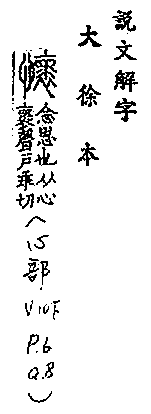 説文解字
大徐本
懷
念思也从心
褱聲戶乖切
(心部
V10下
P.6
a.8)